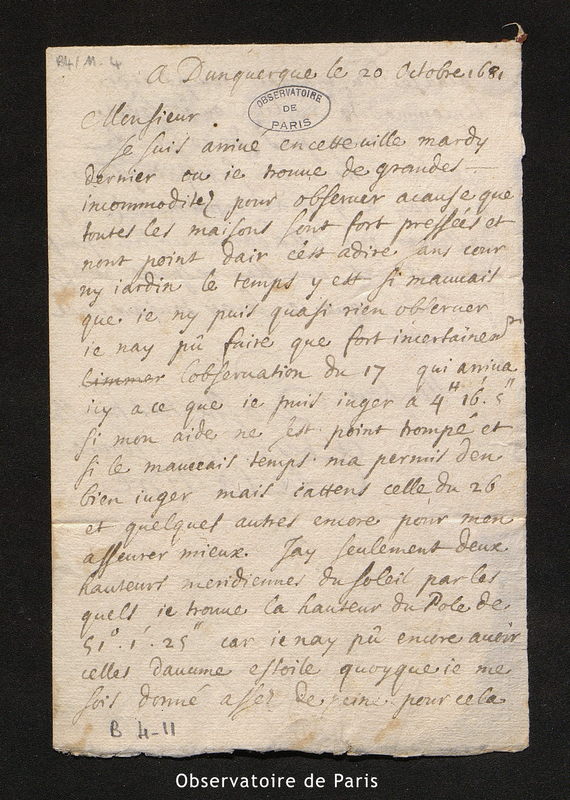 B4/11.4
A Dunquerque le 20 Octobre 1681
OBSERVATOIRE
DE
PARIS
Monsieur
Je suis arrivé en cette ville mardy
dernier ou ie trouve de grandes
incommoditez pour observer acause que
toutes les maisons sont fort pressées et
nont point dair cést adire sans cour
ny iardin le temps y est si mauvais
que ie ny puis quasi rien observer
ie nay pû faire que fort incertainemt
l'observation du 17 qui arriva
icy a ce que ie puis iuger a 4H 16'. 5"
si mon aide ne sest point trompé et
si le mauvais temps ma permis den
bien iuger mais iattens celle du 26
et quelques autres encore pour men
asseurer mieux. Jay seulement deux
hauteurs meridiennes du soleil par les
quels ie trouve la hauteur du Pole de
51°. 1'. 25" car ie nay pû encore avoir
celles dauune estoile quoyque ie me
sois donné assez de peine pour cela
B 4-11
Observatoire de Paris